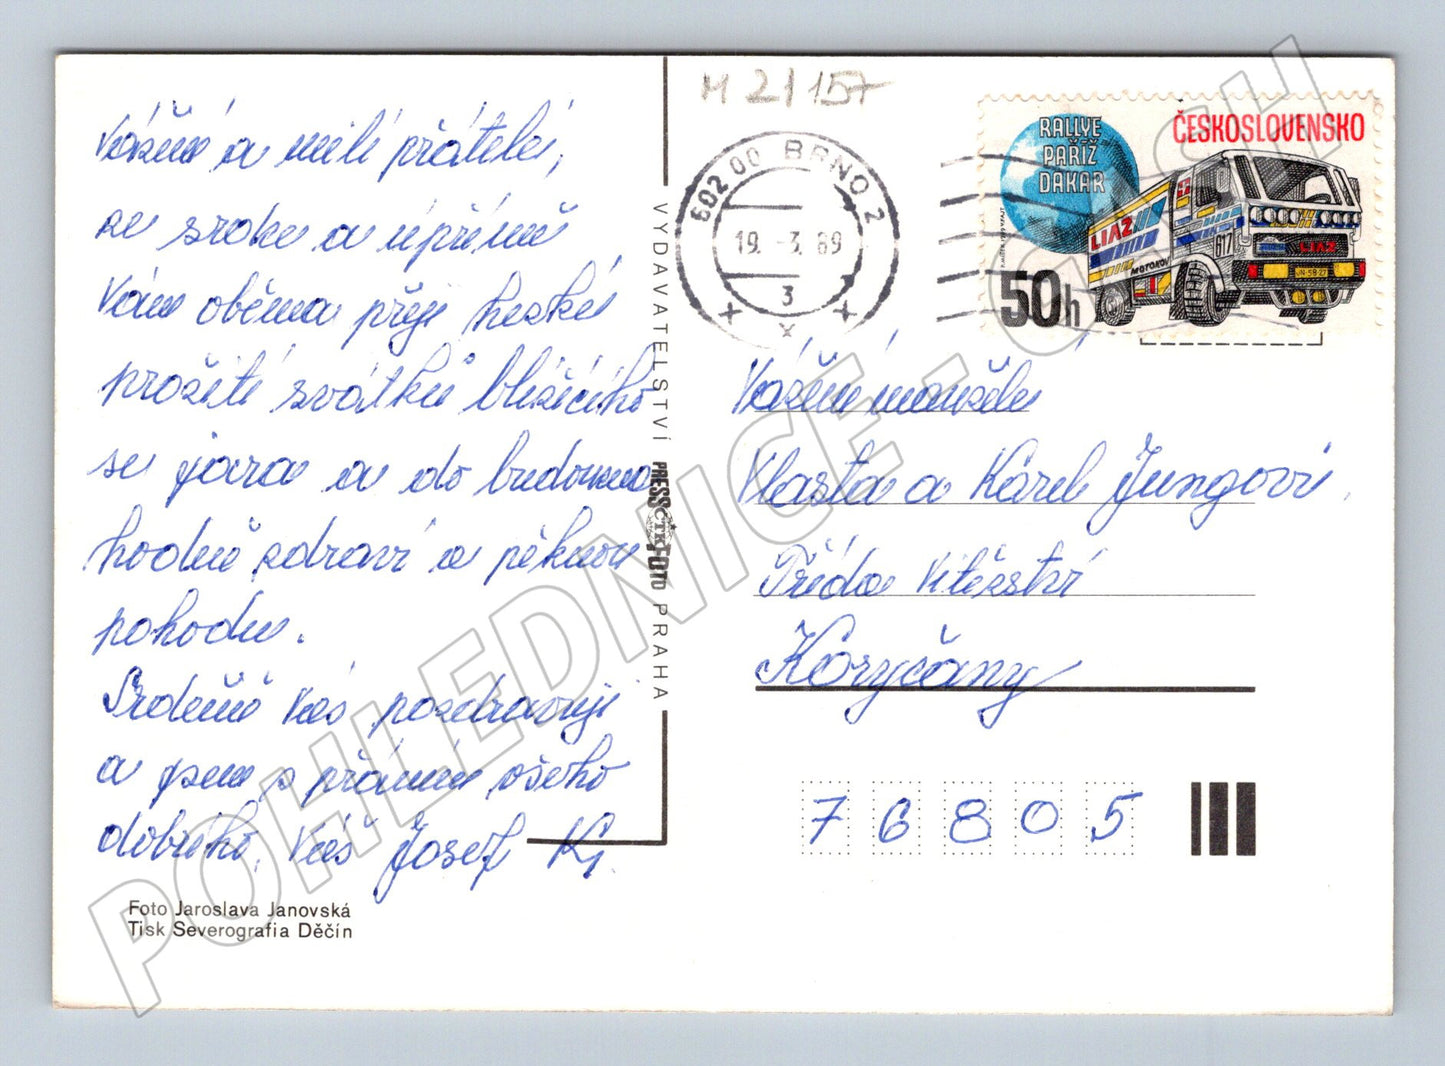 Vážení a milí přátelé,
ze srdce a upřímně
Vám oběma přeji hezké
prožití svátků blížícího
se jara a do budoucna
hodně zdraví a pěknou
pohodu.
Srdečně Vás pozdravuji
a jsem s přáním všeho
dobrého. Váš Josef K.
Foto Jaroslava Janovská
Tisk Severografia Děčín
VYDAVATELSTVÍ PRESSFOTO PRAHA
ČTK
M 21157
602 00 BRNO 2
19. -3. 89
3
x
RALLYE
PAŘÍŽ
DAKAR
ČESKOSLOVENSKO
LIAZ
MOTOKOV
617
LIAZ
50h
Vážení manželé
Vlasta a Karel Jungovi
Třída Vítězství
Koryčany
76805
POHLEDNICE - CASH